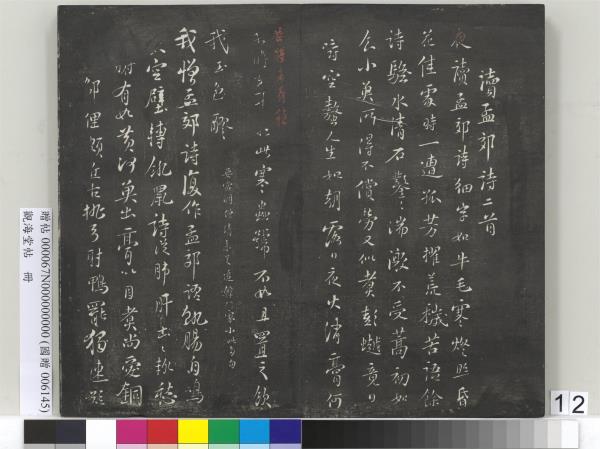 讀孟郊詩二首
夜讀孟郊詩細字如牛毛寒燈照昏
花佳處時一遭孤芳擢荒穢苦語餘
詩騷水清石鑿〻湍激不受篙初如
食小魚所得不償勞又似煮彭竟日
嚼空螯人生如朝露日夜火消膏何
苦將兩耳此寒蟲號不如且置之飲
我玉色醪
我憎孟郊詩復作孟郊語飢腸自鳴
空壁轉飢鼠詩從肺肝出出輒愁
有如黃河魚出膏以自煮尚愛銅
鄙俚頗近古桃弓射鴨罷獨速短
贈帖 000067N000000000 (國贈 006145)
觀海堂帖 冊
12